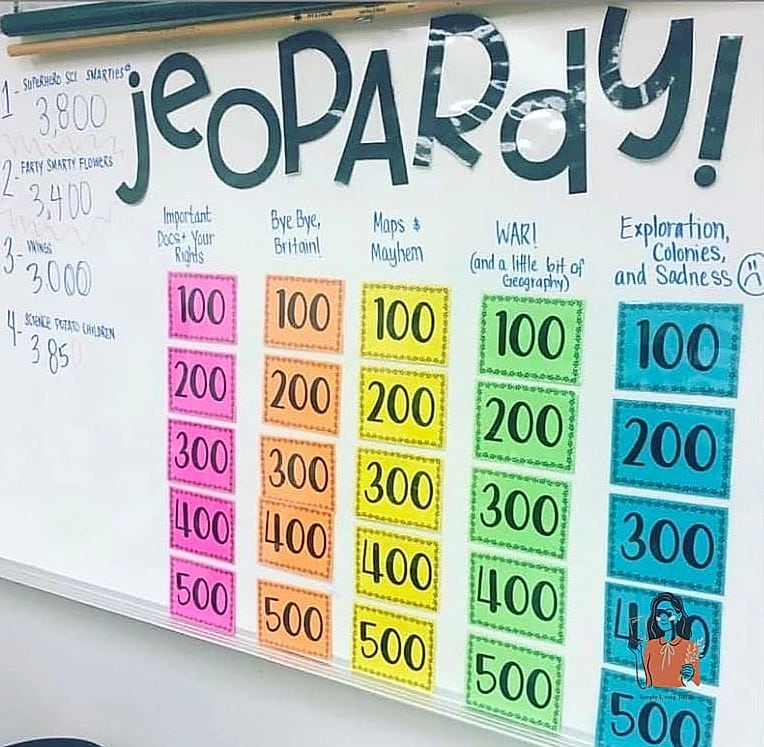 jeOPARdy!
1- SUPERHERO SCI SMARTIES
3,800
2- FARTY SMARTY FLOWERS
3,400
3- VIKINGS
3000
4- SCIENCE POTATO CHILDREN
3850
Important
Docs + Your
Rights
100
200
300
400
500
Bye Bye,
Britain!
100
200
300
400
500
Maps &
Mayhem
100
200
300
400
500
WAR!
(and a little bit of
Geography)
100
200
300
400
500
Exploration,
Colonies,
and Sadness
100
200
300
400
500